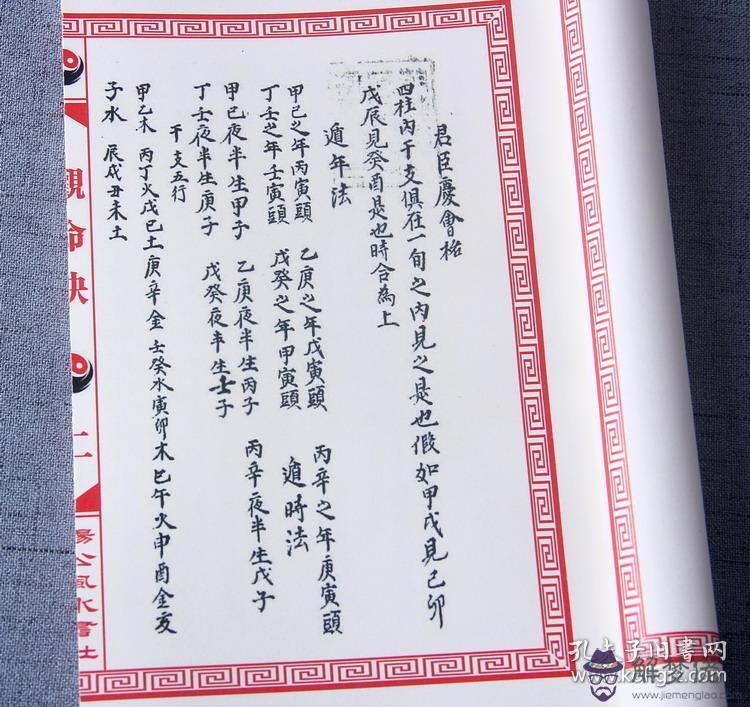 君臣慶會格
四柱內干支俱在一旬之內見之是也假如甲戌見己卯
戊辰見癸酉是也時合為上
遁年法
甲己之年丙寅頭 乙庚之年戊寅頭 丙辛之年庚寅頭
丁壬之年壬寅頭 戊癸之年甲寅頭 遁時法
甲己夜半生甲子 乙庚夜半生丙子 丙辛夜半生戊子
丁壬夜半生庚子 戊癸夜半生壬子
干支五行
甲乙木 丙丁火戊己土庚辛金 壬癸水寅卯木巳午火申酉金亥
子水 辰戌丑未土
觀命訣
二
楊公風水書社
孔夫子旧書网
解梦
www.jiemenglao.com